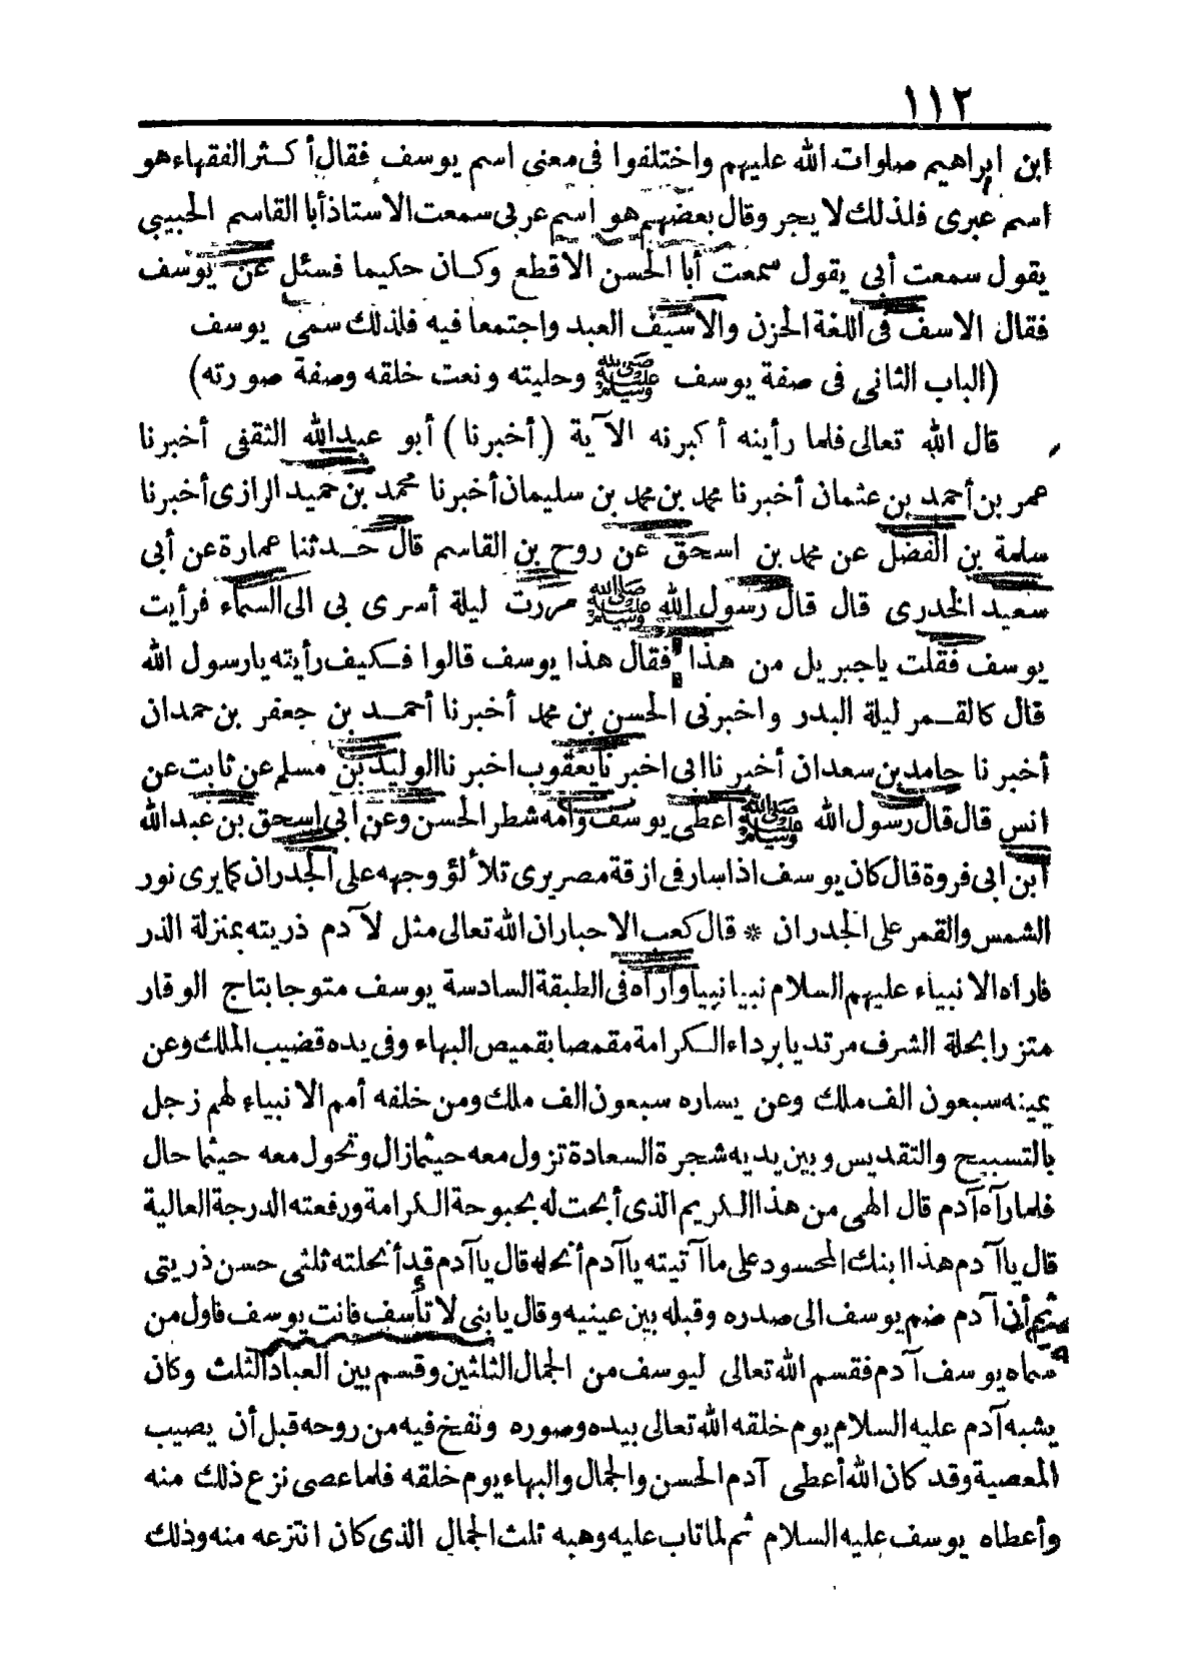 ١١٢
ابن ابراهيم صلوات الله عليهم واختلفوا فى معنى اسم يوسف فقال أكثر الفقهاء هو
اسم عبرى فلذلك لا يجر وقال بعضهم هو اسم عربى سمعت الاستاذ أبا القاسم الحبيبى
يقول سمعت أبى يقول سمعت أبا الحسن الاقطع وكان حكيما فسئل عن يوسف
فقال الاسف فى اللغة الحزن والاسيف العبد واجتمعا فيه فلذلك سمى يوسف
(الباب الثانى فى صفة يوسف ﷺ وحليته ونعت خلقه وصفة صورته)
قال الله تعالى فلما رأينه أكبرنه الآية (أخبرنا) أبو عبدالله الثقفى أخبرنا
عمر بن أحمد بن عثمان أخبرنا محمد بن محمد بن سليمان أخبرنا محمد بن حميد الرازى أخبرنا
سلمة بن الفضل عن محمد بن اسحق عن روح بن القاسم قال حدثنا عمارة عن أبى
سعيد الخدرى قال قال رسول الله ﷺ مررت ليلة أسرى بى الى السماء فرأيت
يوسف فقلت ياجبريل من هذا فقال هذا يوسف قالوا فكيف رأيته يارسول الله
قال كالقمر ليلة البدر واخبرنى الحسن بن محمد أخبرنا أحمد بن جعفر بن حمدان
أخبرنا حامد بن سعدان أخبرنا ابى اخبرنا يعقوب اخبرنا الوليد بن مسلم عن ثابت عن
انس قال قال رسول الله ﷺ اعطى يوسف وأمه شطر الحسن وعن ابى اسحق بن عبدالله
ابن ابى فروة قال كان يوسف اذا سار فى ازقة مصر يرى تلألؤ وجهه على الجدران كما يرى نور
الشمس والقمر على الجدران * قال كعب الاحبار ان الله تعالى مثل لآدم ذريته بمنزلة الذر
فاراه الانبياء عليهم السلام نبيا نبيا وأراه فى الطبقة السادسة يوسف متوجا بتاج الوقار
متزرا بحلة الشرف مرتديا برداء الكرامة مقمصا بقميص البهاء وفى يده قضيب الملك وعن
يمينه سبعون الف ملك وعن يساره سبعون الف ملك ومن خلفه أمم الانبياء لهم زجل
بالتسبيح والتقديس وبين يديه شجرة السعادة تزول معه حيثما زال وتحول معه حيثما حال
فلما رآه آدم قال الهى من هذا الكريم الذى أبحت له بحبوحة الكرامة ورفعته الدرجة العالية
قال ياآدم هذا ابنك المحسود على ماآتيته ياآدم أنحله قال ياآدم قد أنحلته ثلثى حسن ذريتى
ثم أن آدم ضم يوسف الى صدره وقبله بين عينيه وقال يابنى لا تأسف فانت يوسف فاول من
سماه يوسف آدم فقسم الله تعالى ليوسف من الجمال الثلثين وقسم بين العباد الثلث وكان
يشبه آدم عليه السلام يوم خلقه الله تعالى بيده وصوره ونفخ فيه من روحه قبل أن يصيب
المعصية وقد كان الله أعطى آدم الحسن والجمال والبهاء يوم خلقه فلما عصى نزع ذلك منه
وأعطاه يوسف عليه السلام ثم لما تاب عليه وهبه ثلث الجمال الذى كان انتزعه منه وذلك